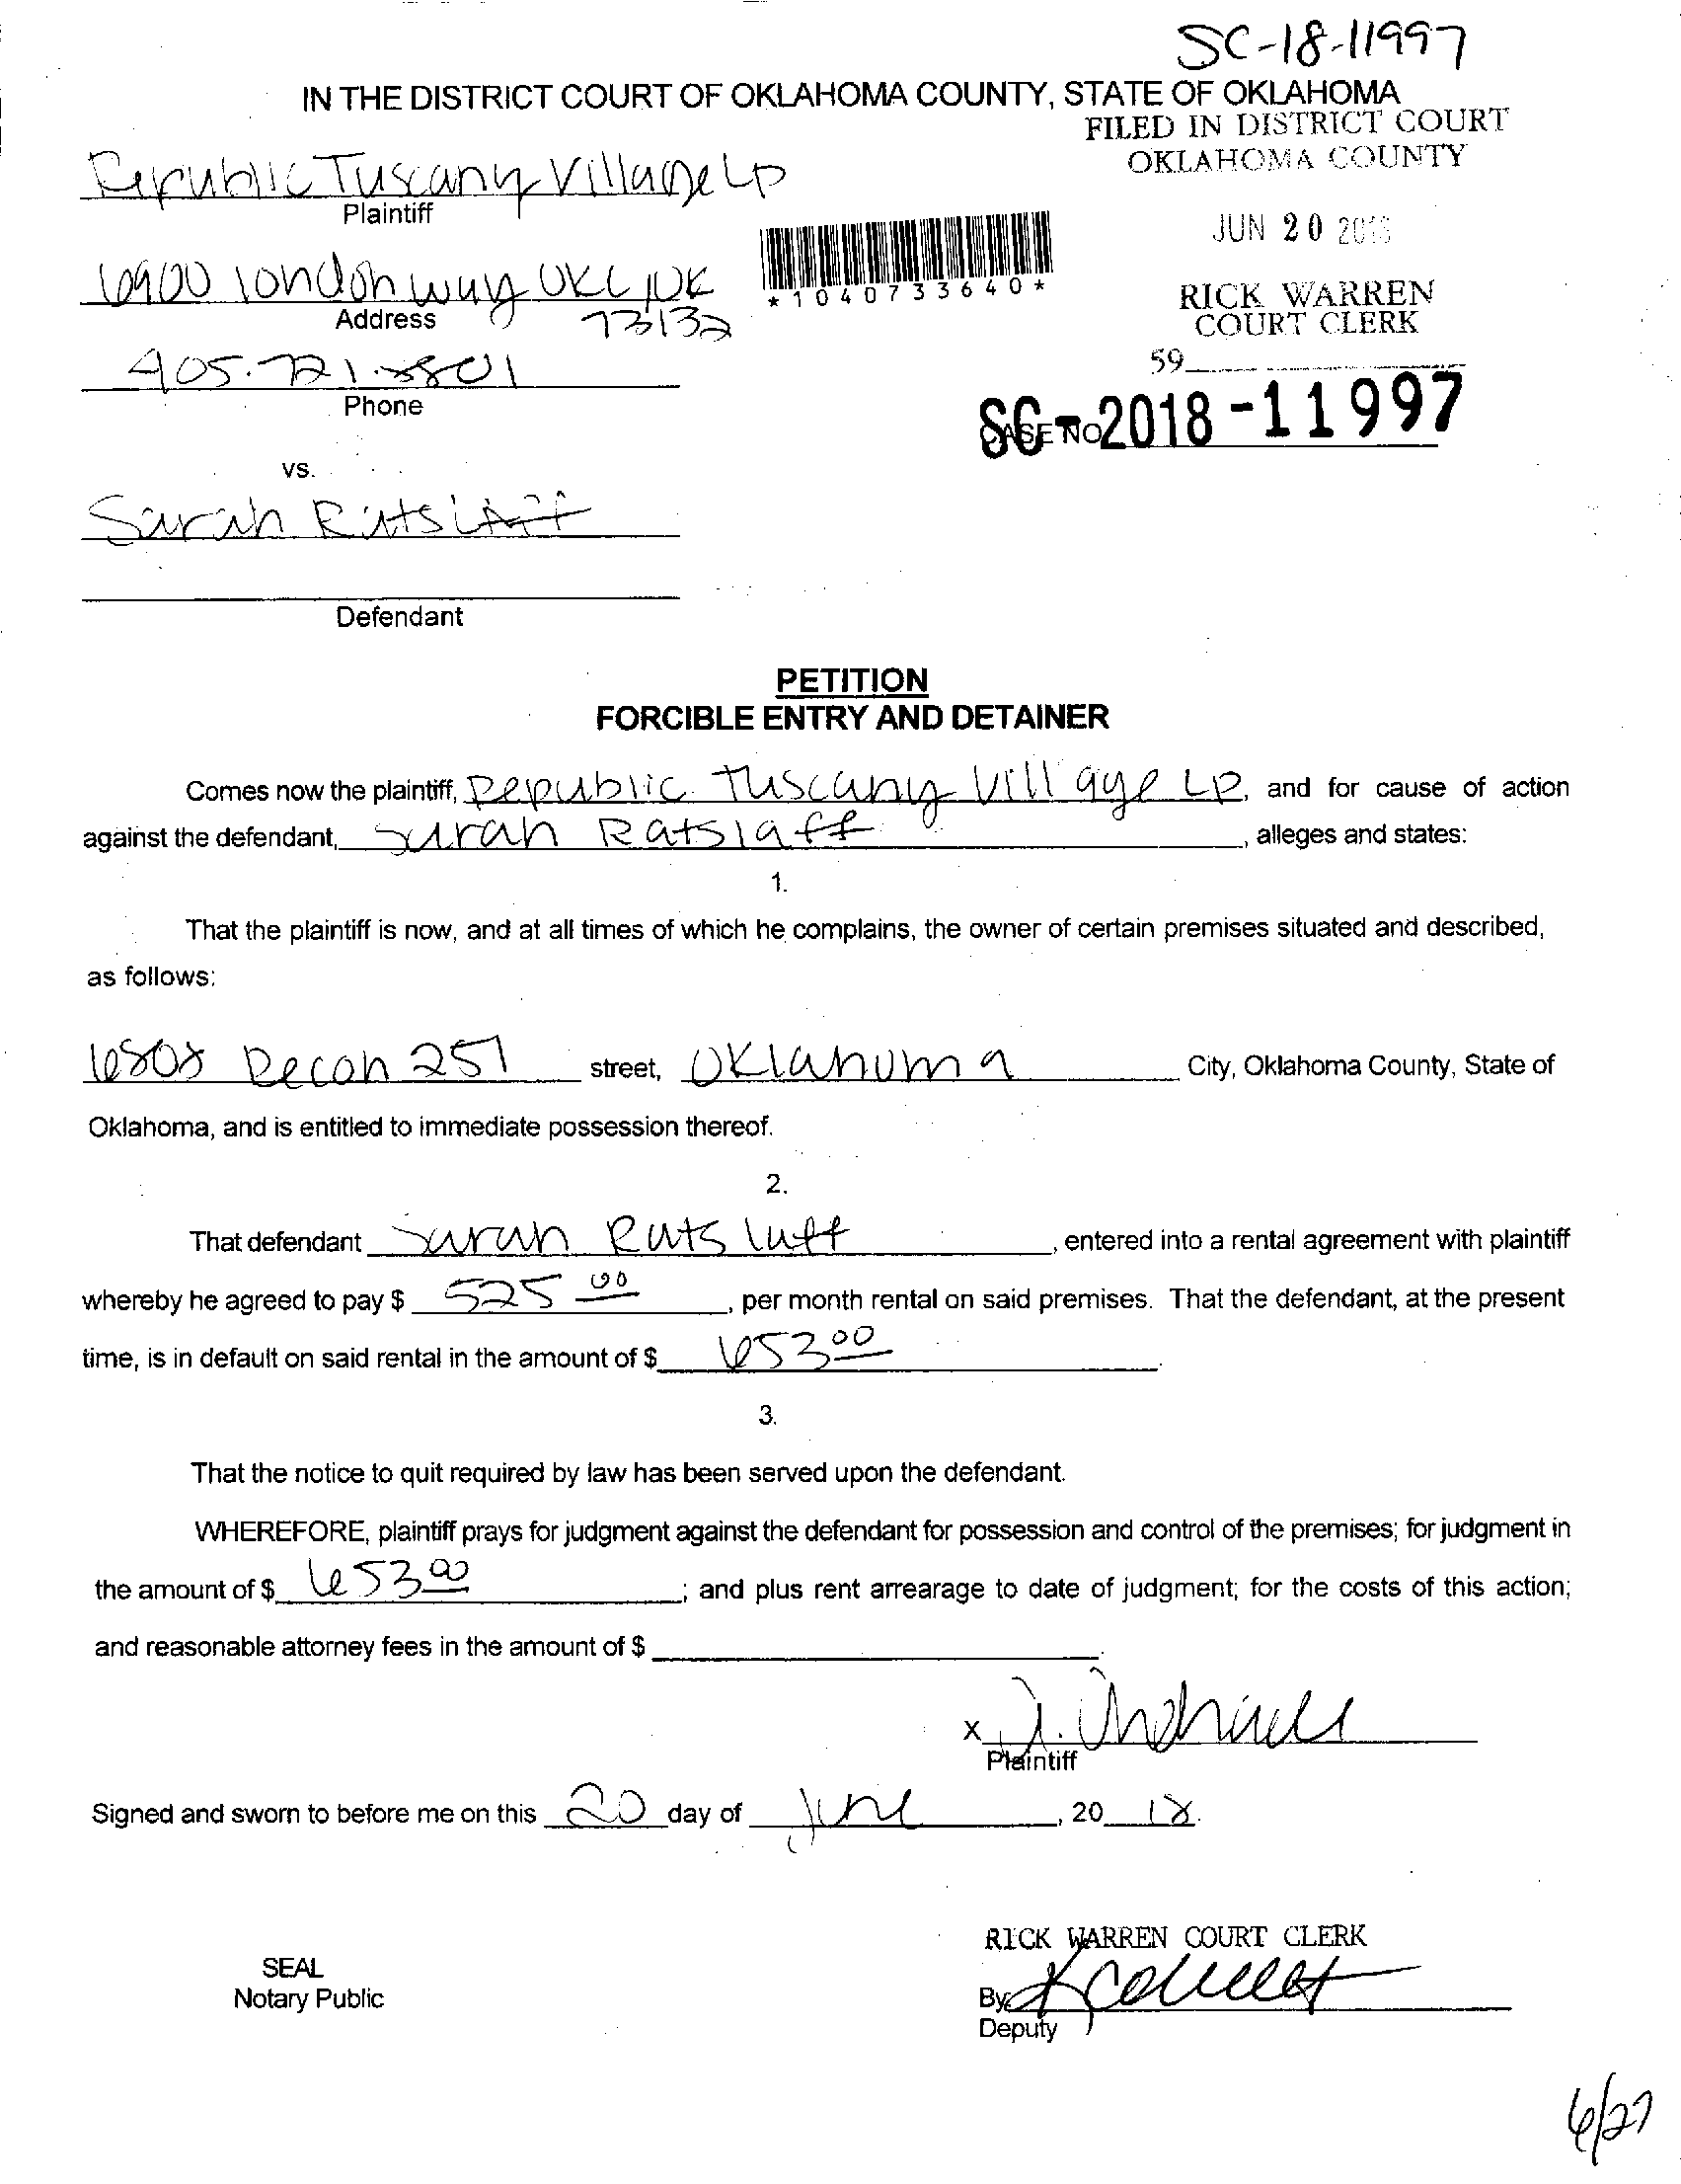 SC-18-11997
IN THE DISTRICT COURT OF OKLAHOMA COUNTY, STATE OF OKLAHOMA
FILED IN DISTRICT COURT
OKLAHOMA COUNTY
Republic Tuscany Village LP
Plaintiff
JUN 20 2018
6900 london way OKC OK
73132
Address
*1040733640*
RICK WARREN
COURT CLERK
405.721.8801
Phone
59
CASE NO
SC-2018-11997
vs.
Sarah Ratslaff
Defendant
PETITION
FORCIBLE ENTRY AND DETAINER
Comes now the plaintiff, Republic Tuscany Village LP, and for cause of action
against the defendant, Sarah Ratslaff, alleges and states:
1.
That the plaintiff is now, and at all times of which he complains, the owner of certain premises situated and described,
as follows:
6808 Decon 251 street, Oklahoma City, Oklahoma County, State of
Oklahoma, and is entitled to immediate possession thereof.
2.
That defendant Sarah Ratslaff, entered into a rental agreement with plaintiff
whereby he agreed to pay $ 525 00, per month rental on said premises. That the defendant, at the present
time, is in default on said rental in the amount of $ 653 00.
3.
That the notice to quit required by law has been served upon the defendant.
WHEREFORE, plaintiff prays for judgment against the defendant for possession and control of the premises; for judgment in
the amount of $ 653 00; and plus rent arrearage to date of judgment; for the costs of this action;
and reasonable attorney fees in the amount of $ .
X
Plaintiff
Signed and sworn to before me on this 20 day of June, 20 18.
RICK WARREN COURT CLERK
SEAL
Notary Public
By
Deputy
6/27